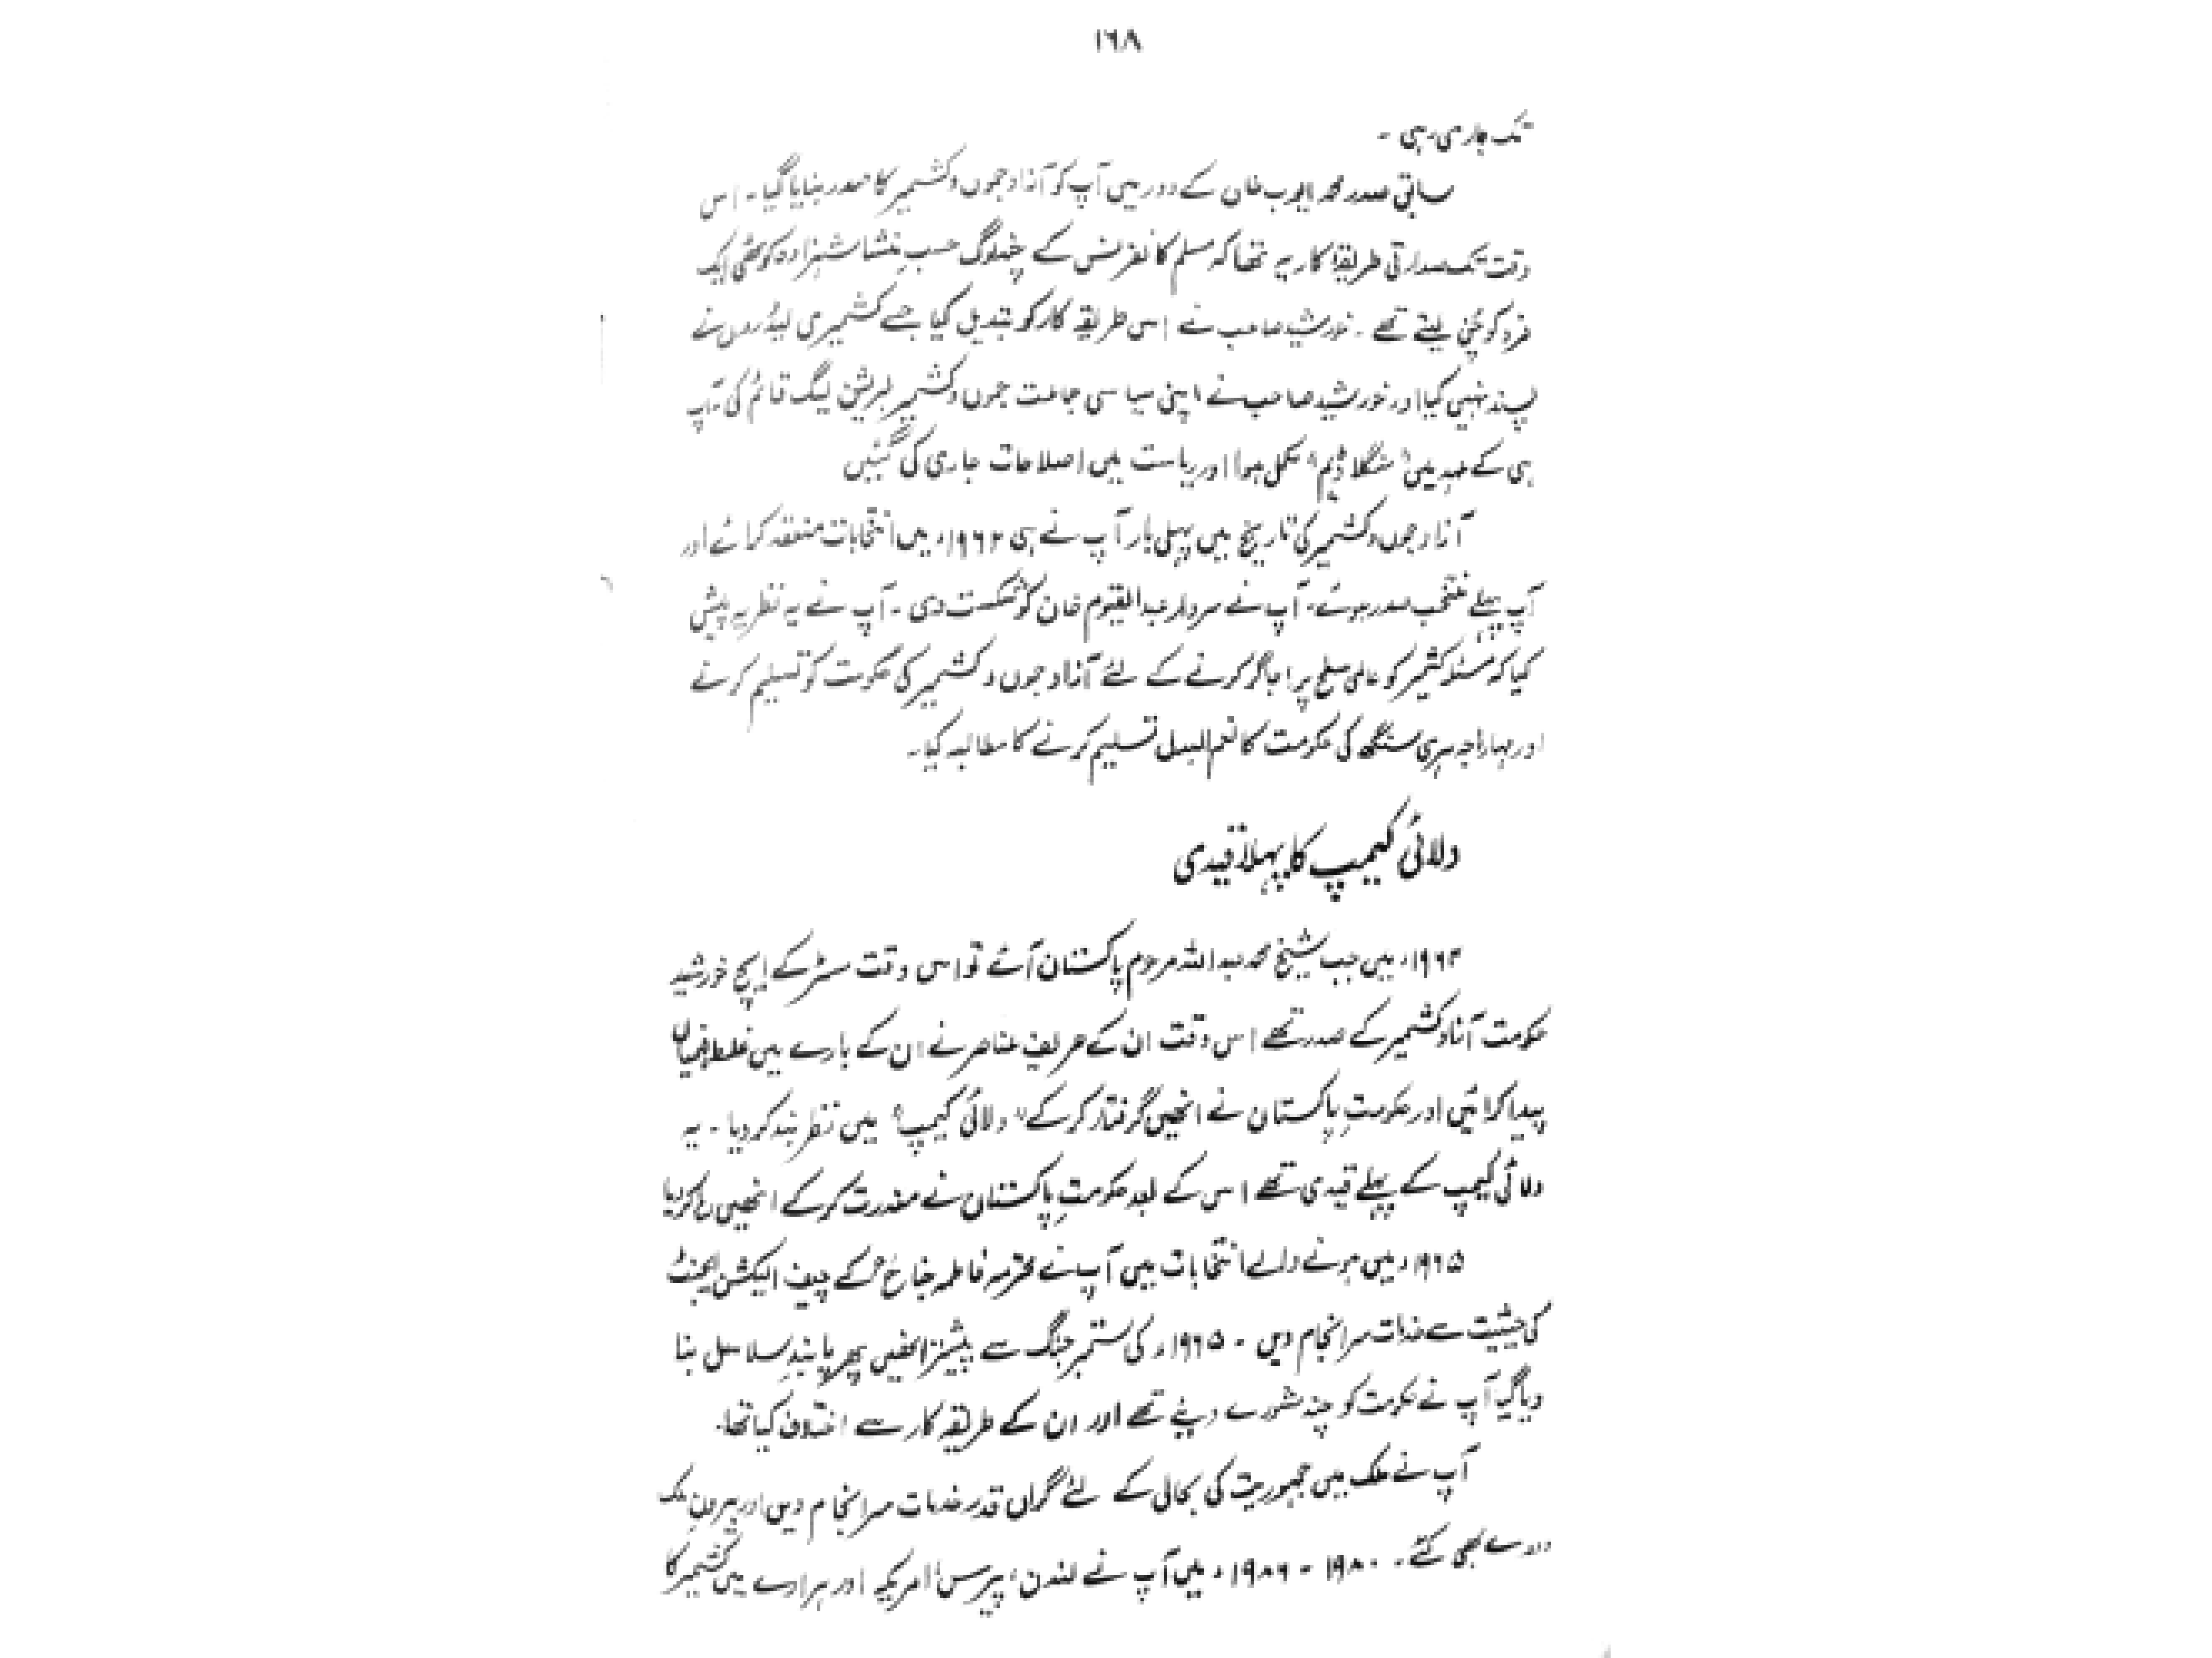 ۱۶۸
تک جاری رہی ۔
سابق صدر محمد ایوب خان کے دور میں آپ کو آزاد جموں و کشمیر کا صدر بنایا گیا ۔ اس
وقت تک صدارتی طریقۂ کار یہ تھا کہ مسلم کانفرنس کے چند لوگ حسبِ منشا شہزادہ کوٹھی ایک
فرد کو چُن لیتے تھے ۔ خورشید صاحب نے اس طریقہ کار کو تبدیل کیا جسے کشمیری لیڈروں نے
پسند نہیں کیا اور خورشید صاحب نے اپنی سیاسی جماعت جموں و کشمیر لبریشن لیگ قائم کی ۔ آپ
ہی کے عہد میں "منگلا ڈیم" مکمل ہوا اور ریاست میں اصلاحات جاری کی گئیں
آزاد جموں و کشمیر کی تاریخ میں پہلی بار آپ نے ہی ۱۹۶۲ء میں انتخابات منعقد کرائے اور
آپ پہلے منتخب صدر ہوئے ۔ آپ نے سردار عبدالقیوم خان کو شکست دی ۔ آپ نے یہ نظریہ پیش
کیا کہ مسئلہ کشمیر کو عالمی سطح پر اجاگر کرنے کے لئے آزاد جموں و کشمیر کی حکومت کو تسلیم کرنے
اور مہاراجہ ہری سنگھ کی حکومت کا نعم البدل تسلیم کرنے کا مطالبہ کیا ۔
دلائی کیمپ کا پہلا قیدی
۱۹۶۴ء میں جب شیخ محمد عبداللہ مرحوم پاکستان آئے تو اس وقت مسٹر کے ایچ خورشید
حکومت آزاد کشمیر کے صدر تھے اس وقت ان کے حریف عناصر نے ان کے بارے میں غلط فہمیاں
پیدا کرائیں اور حکومتِ پاکستان نے انھیں گرفتار کر کے "دلائی کیمپ" میں نظر بند کر دیا ۔ یہ
دلائی کیمپ کے پہلے قیدی تھے اس کے بعد حکومتِ پاکستان نے معذرت کر کے انھیں رہا کر دیا
۱۹۶۵ء میں ہونے والے انتخابات میں آپ نے محترمہ فاطمہ جناحؒ کے چیف الیکشن ایجنٹ
کی حیثیت سے خدمات سرانجام دیں ۔ ۱۹۶۵ء کی ستمبر جنگ سے پیشتر انھیں پھر پابندِ سلاسل بنا
دیا گیا آپ نے حکومت کو چند مشورے دیئے تھے اور ان کے طریقہ کار سے اختلاف کیا تھا ۔
آپ نے ملک میں جمہوریت کی بحالی کے لئے گراں قدر خدمات سرانجام دیں اور بیرونِ ملک
دورے بھی کئے ۔ ۱۹۸۰ - ۱۹۸۶ء میں آپ نے لندن، پیرس، امریکہ اور ہرارے میں کشمیر کا